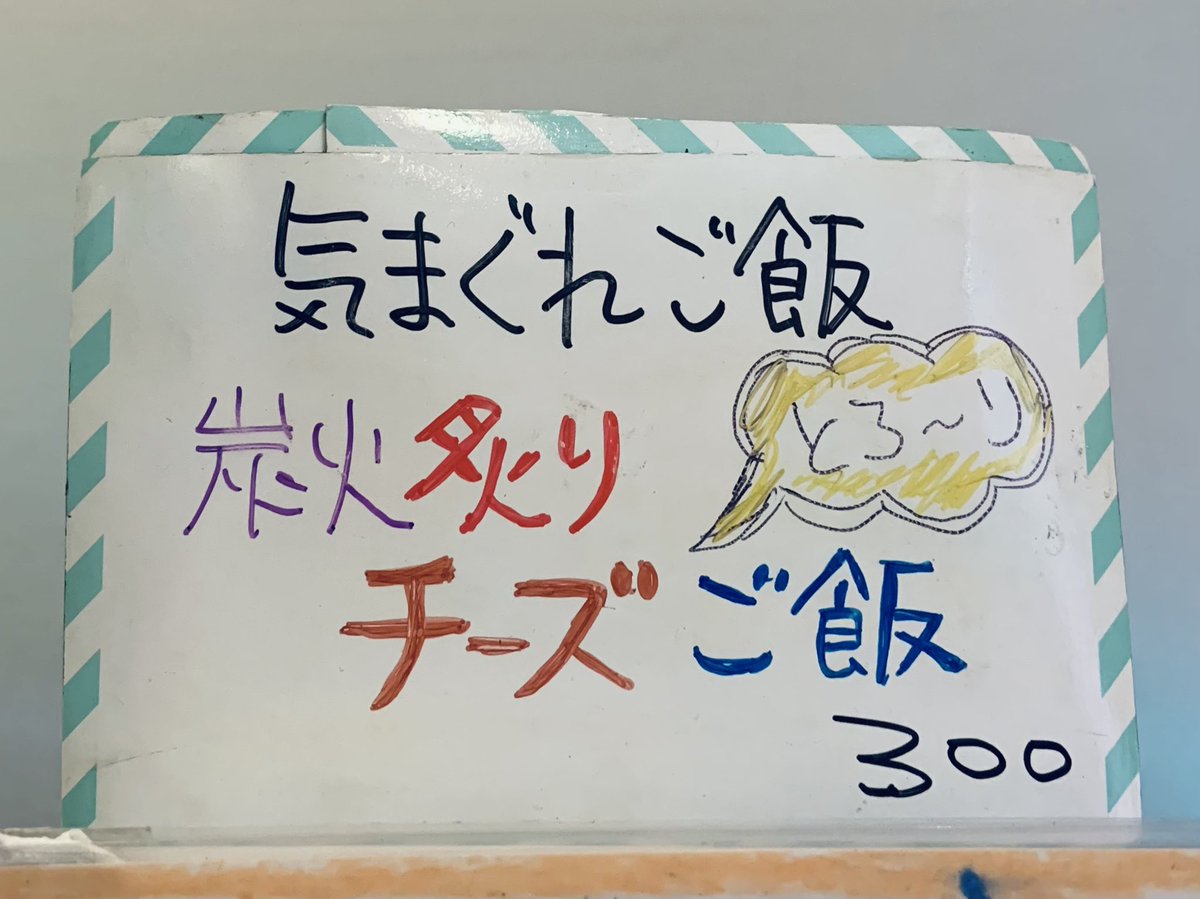 気まぐれご飯
炭火炙り
チーズご飯
300